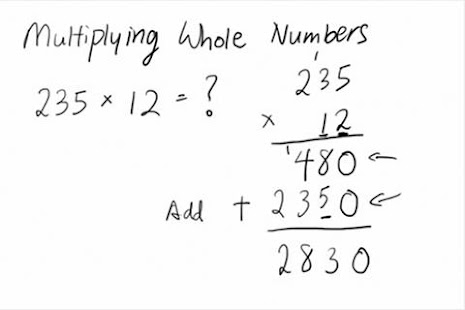 Multiplying Whole Numbers
235 × 12 = ?
1
235
× 12
1
480 ←
Add + 2350 ←
2830